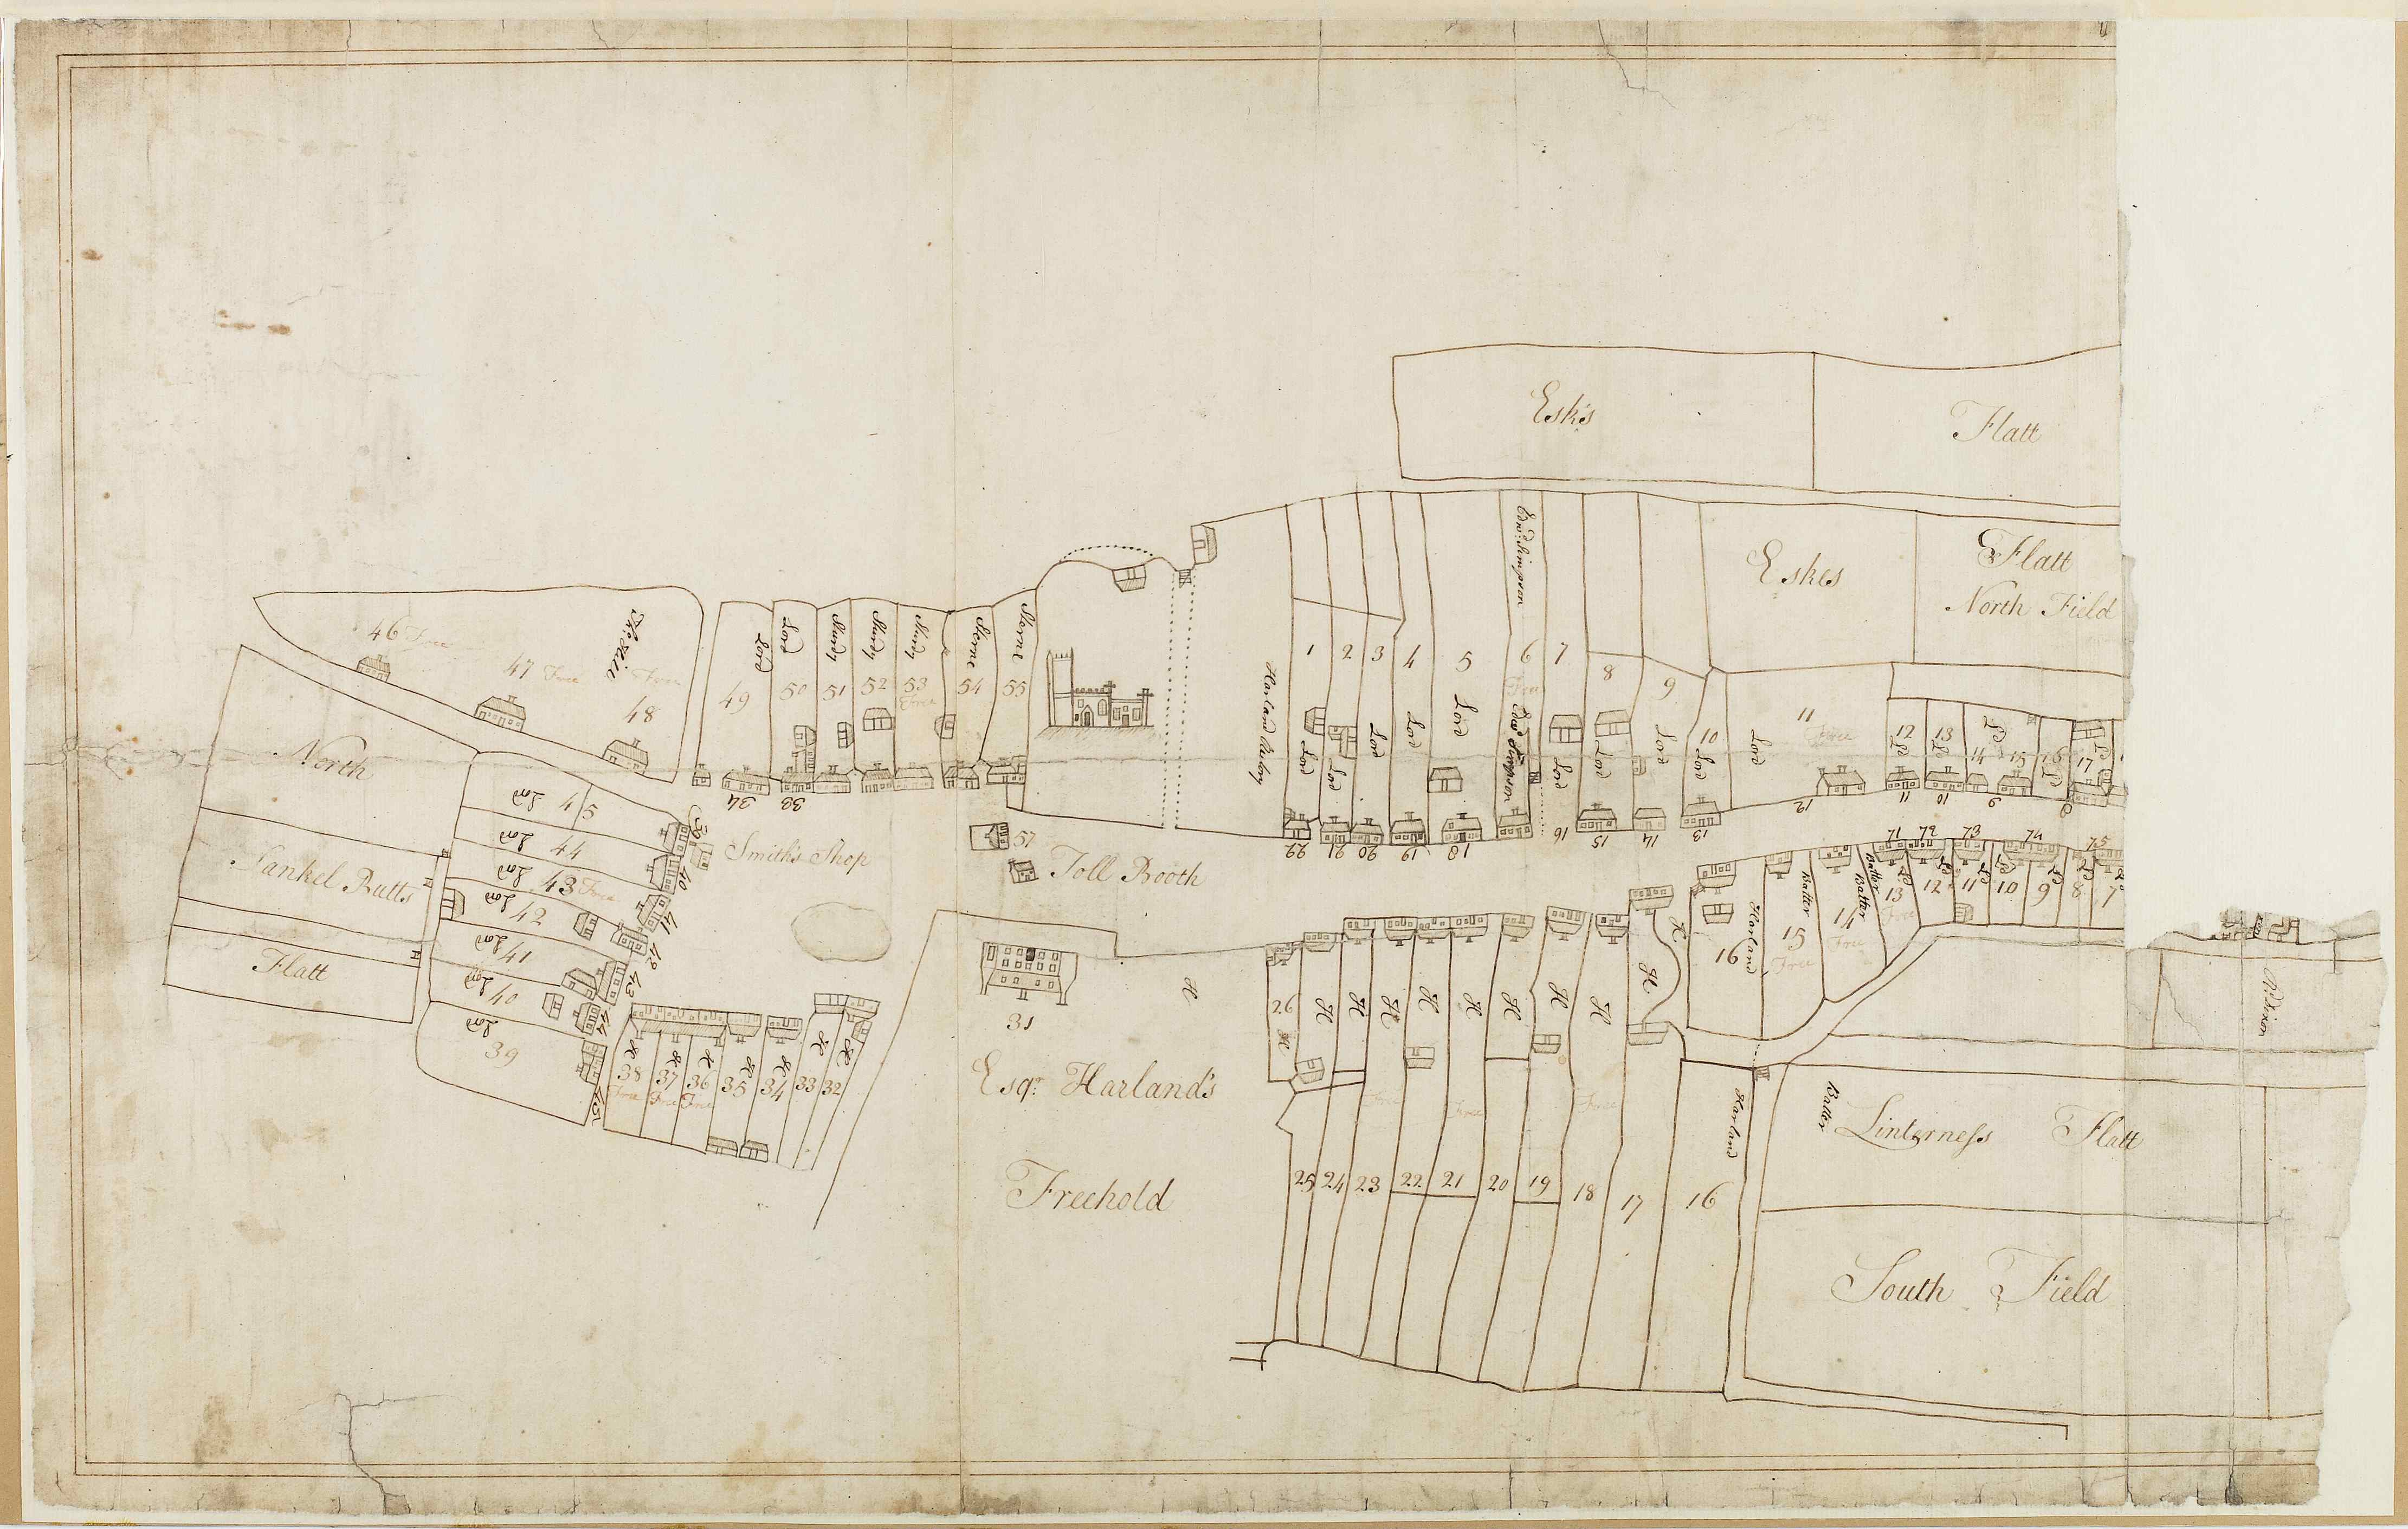 Esk's
Flatt
Eskes
Flatt
North Field
Edwd. Simpson
46 Free
47 Free
Free
48
Lord
49
Lord
50
Mundy
51
Mundy
52
Mundy
53
Free
Sterne
54
Sterne
55
Harland
1
Lord
2
Lord
3
Lord
4
Lord
5
Lord
6
Free
Edwd. Simpson
7
Lord
8
Lord
9
Lord
10
Lord
Lord
11
Free
12
Ld
13
Ld
14
Ld
15
16
Ld
17
Ld
34
22
21
20
19
18
16
15
14
13
12
11
10
9
8
North
Tankel Butts
Flatt
Lord 45
Lord 44
Lord 43 Free
Lord 42
Lord 41
Lord 40
Lord
39
39
40
41
42
43
44
45
Smith's Shop
57
Toll Booth
71
72
73
74
75
Harland
16
Batter
15
Free
Batter
Batter
14
Free
13
Free
12
11
10
9
8
7
H
38
Free
H
37
Free
H
36
Free
H
35
H
34
H
33
H
32
31
H
Esqr. Harland's
Freehold
26
H
H
H
H
H
H
H
H
H
H
H
Free
Free
Free
25
24
23
22
21
20
19
18
17
16
Harland
Batter
Linterness Flatt
South Field
Rd. Dixon